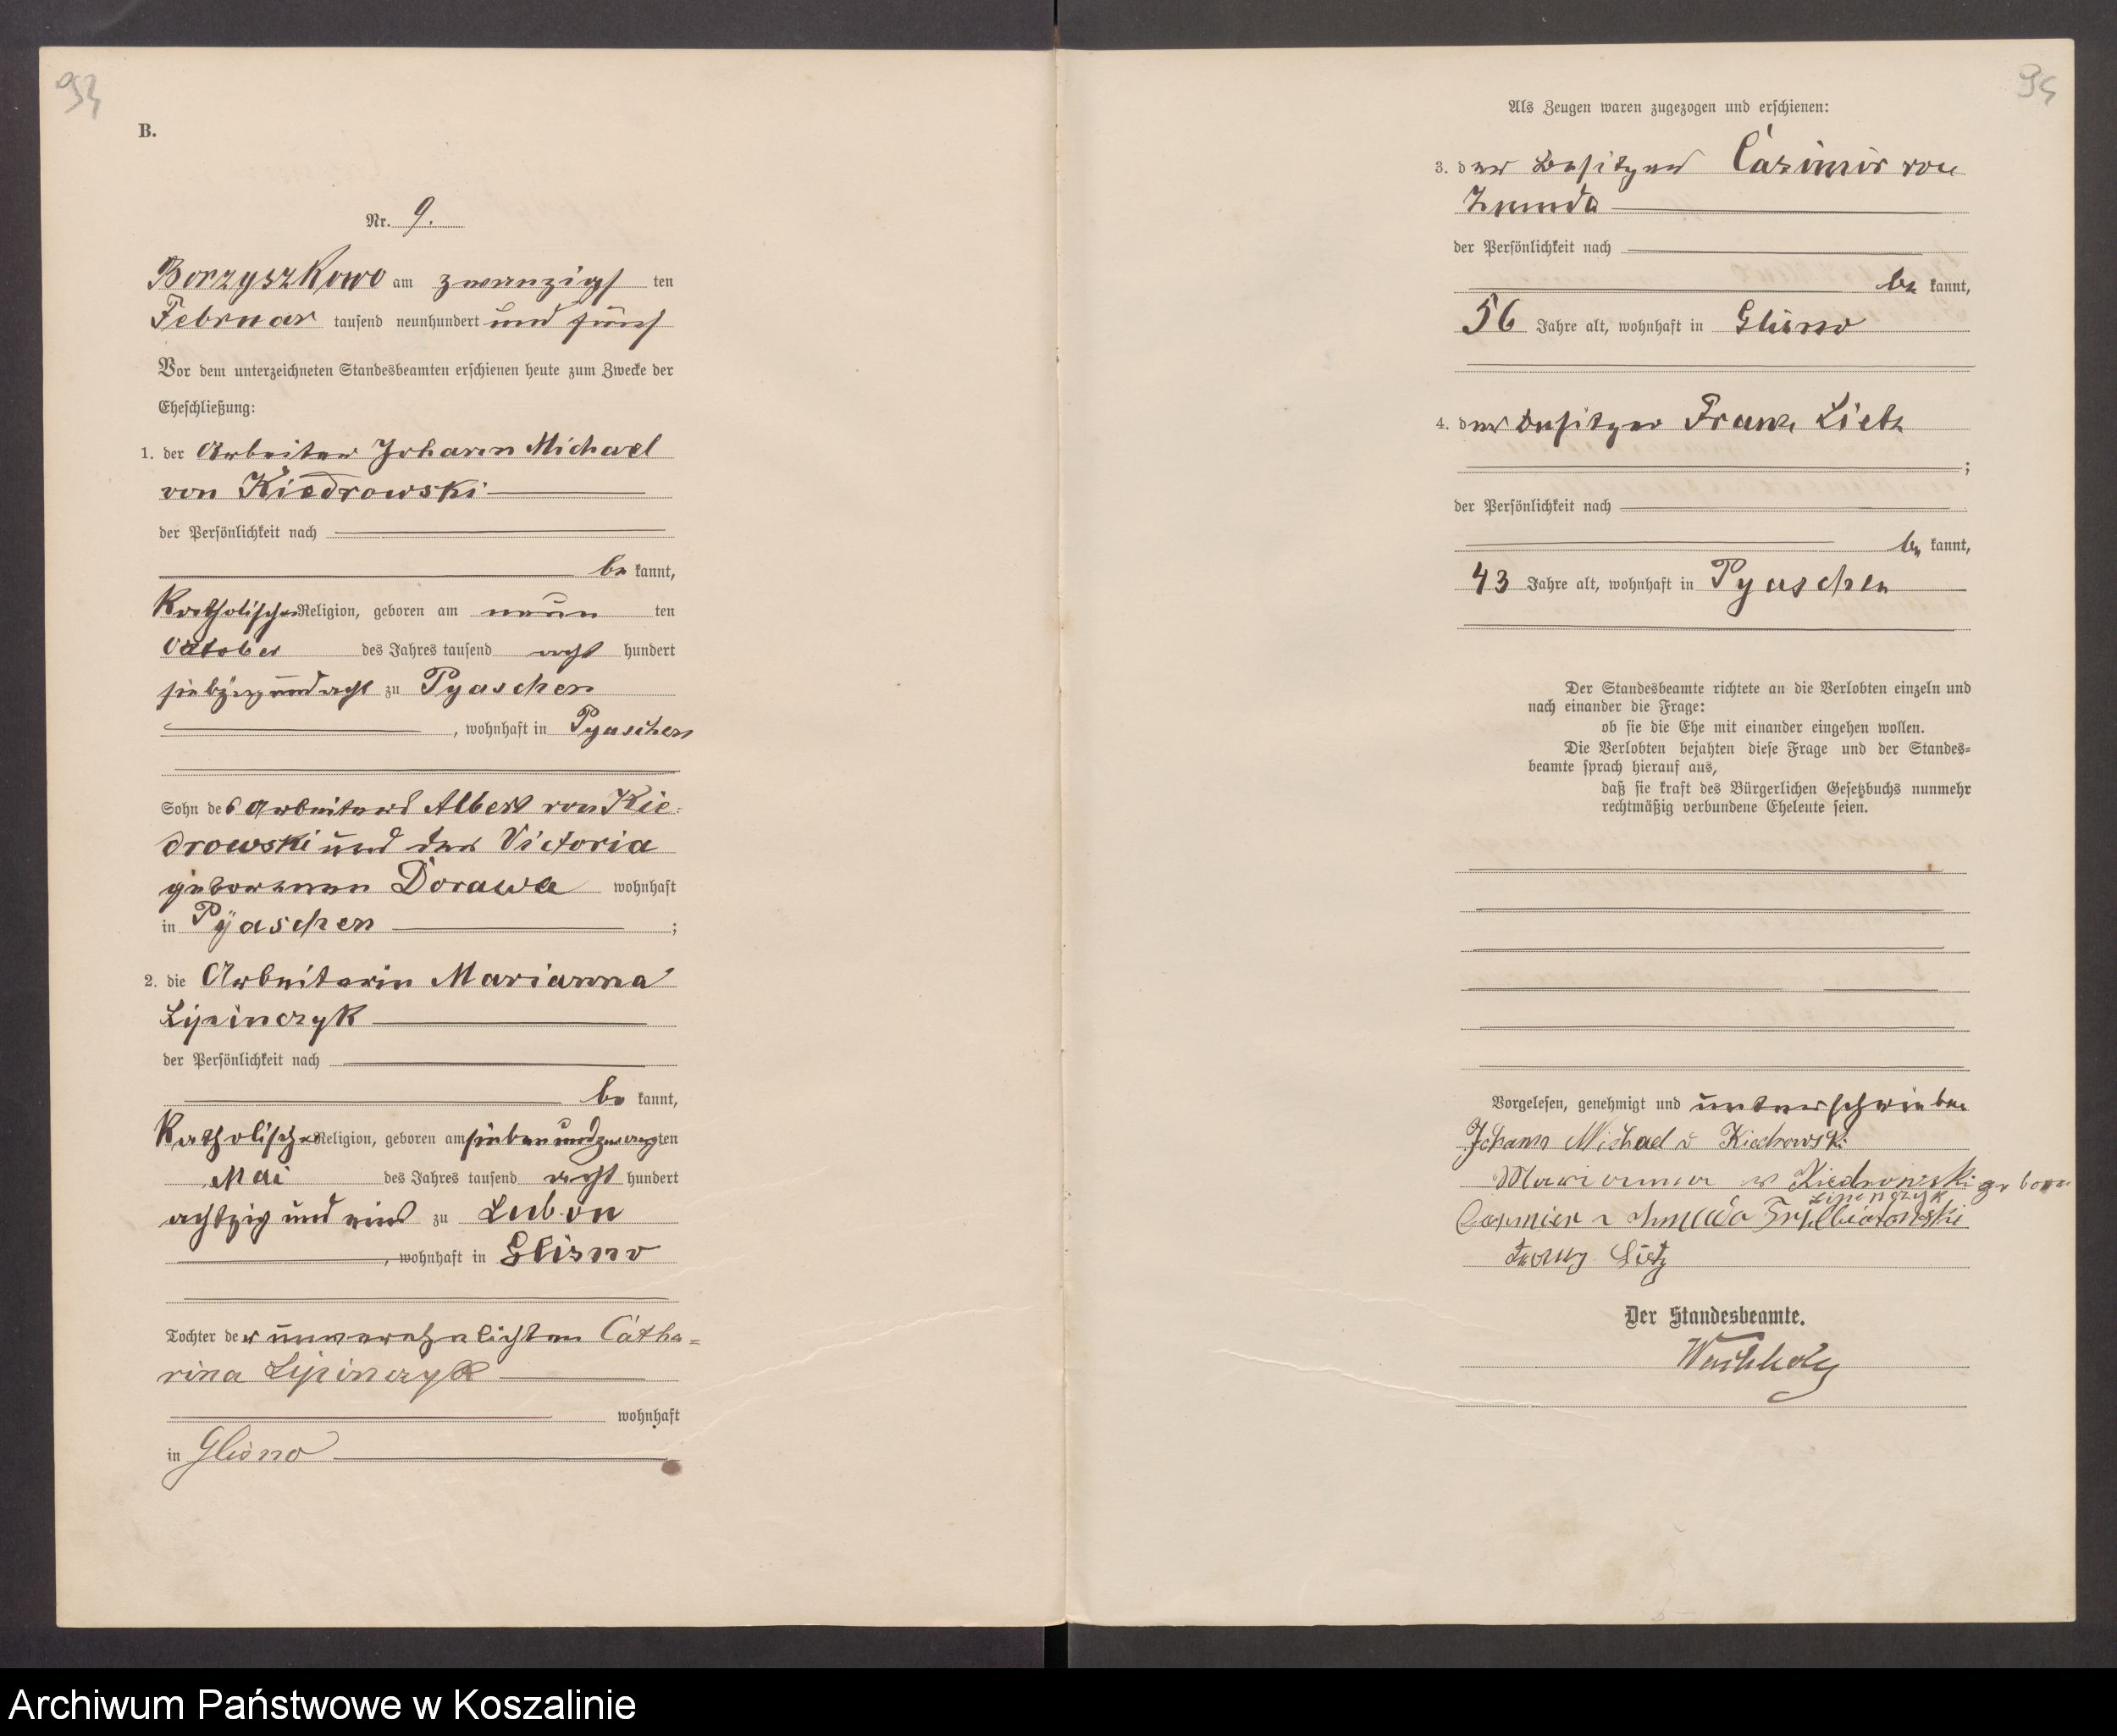 94
B.
Nr. 9.
Borzyszkowo am zwanzigsten
Februar tausend neunhundert und fünf
Vor dem unterzeichneten Standesbeamten erschienen heute zum Zwecke der
Eheschließung:
1. der Arbeiter Johann Michael
von Kiedrowski
der Persönlichkeit nach
be kannt,
Katholischer Religion, geboren am neun ten
October des Jahres tausend acht hundert
siebzig und acht zu Pyaschen
, wohnhaft in Pyaschen
Sohn des Arbeiters Albert von Kie-
drowski und der Victoria
geborenen Dorawa wohnhaft
in Pÿaschen ;
2. die Arbeiterin Marianna
Lipinczyk
der Persönlichkeit nach
be kannt,
Katholischer Religion, geboren am siebenundzwanzigten
Mai des Jahres tausend acht hundert
achtzig und eins zu Lubon
, wohnhaft in Glisno
Tochter der unverehelichten Catha=
rina Lipinczyk
wohnhaft
in Glisno
95
Als Zeugen waren zugezogen und erschienen:
3. der Besitzer Casimir von
Zmuda
der Persönlichkeit nach
be kannt,
56 Jahre alt, wohnhaft in Glisno
4. der Besitzer Franz Lietz
;
der Persönlichkeit nach
be kannt,
43 Jahre alt, wohnhaft in Pyaschen
Der Standesbeamte richtete an die Verlobten einzeln und
nach einander die Frage:
ob sie die Ehe mit einander eingehen wollen.
Die Verlobten bejahten diese Frage und der Standes=
beamte sprach hierauf aus,
daß sie kraft des Bürgerlichen Gesetzbuchs nunmehr
rechtmäßig verbundene Eheleute seien.
Vorgelesen, genehmigt und unterschrieben
Johann Michael v Kiedrowski
Marianna v Kiedrowski geborene
Lipinczyk
Casmier v Zmuda
Franz Lietz
Der Standesbeamte.
Wachholz
Archiwum Państwowe w Koszalinie